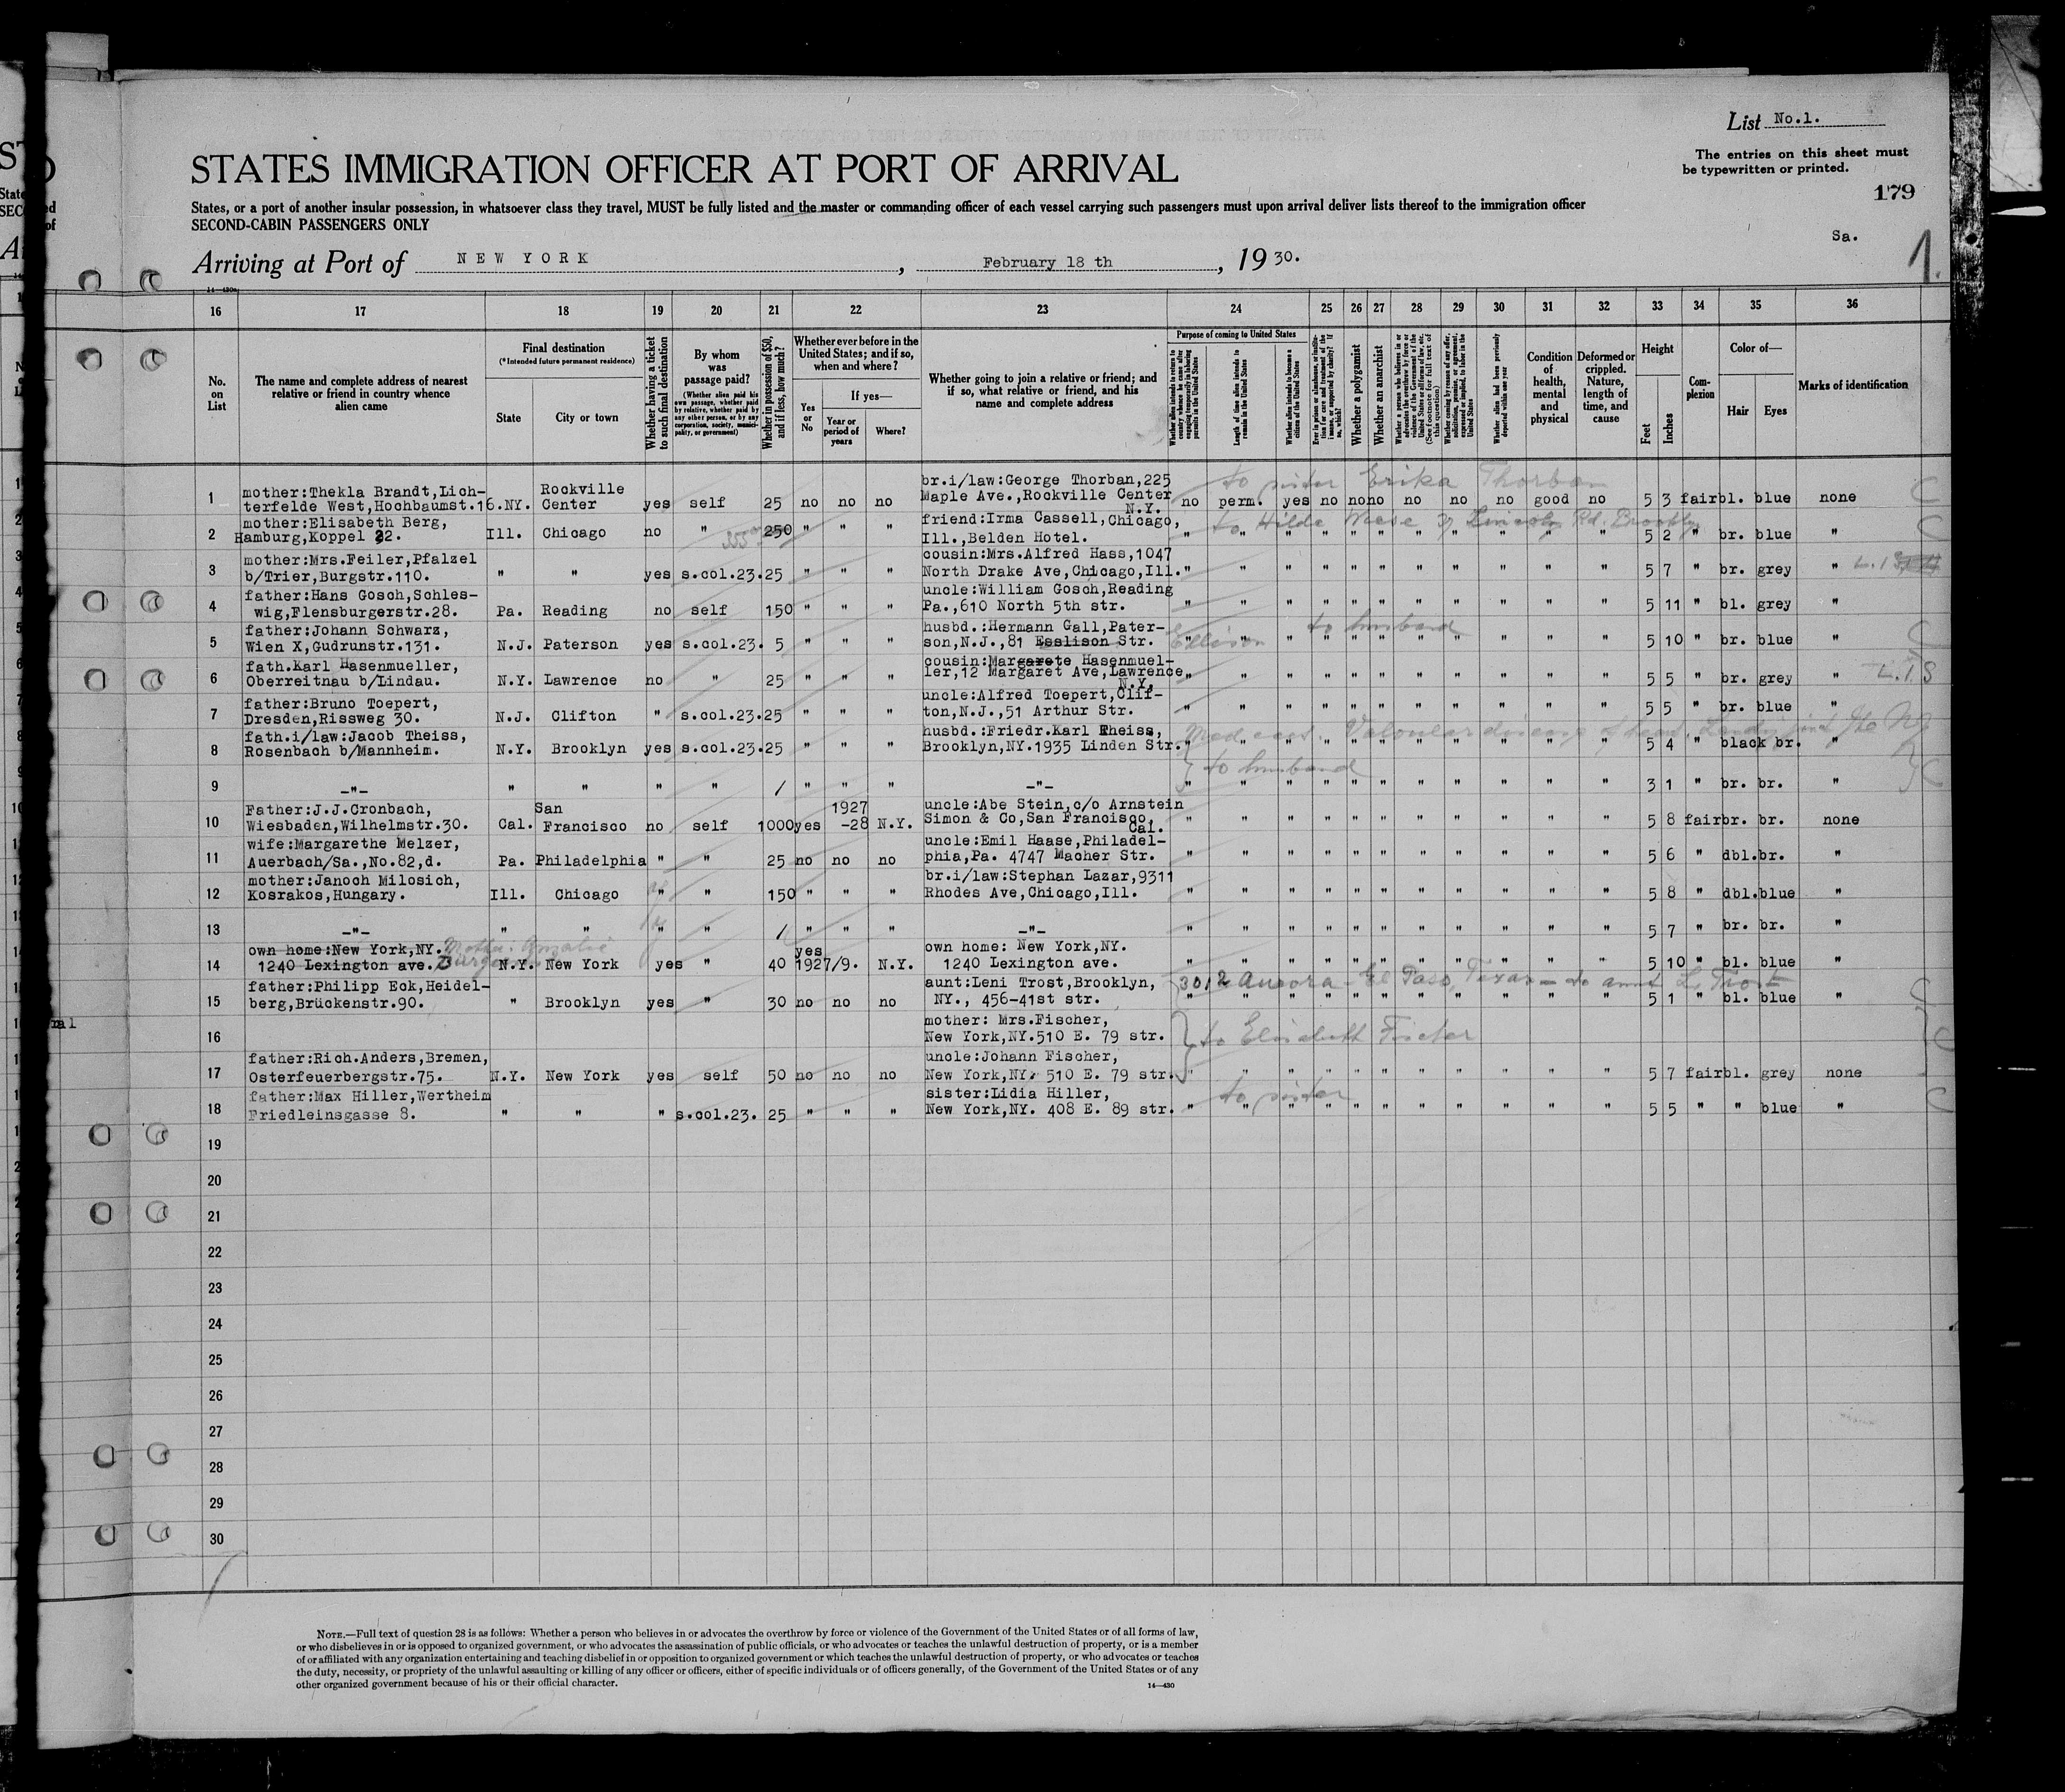 List No.1.
The entries on this sheet must
be typewritten or printed.
179
STATES IMMIGRATION OFFICER AT PORT OF ARRIVAL
States, or a port of another insular possession, in whatsoever class they travel, MUST be fully listed and the master or commanding officer of each vessel carrying such passengers must upon arrival deliver lists thereof to the immigration officer
SECOND-CABIN PASSENGERS ONLY
Sa.
1.
Arriving at Port of NEW YORK, February 18 th, 1930.
14—430a
16 17 18 19 20 21 22 23 24 25 26 27 28 29 30 31 32 33 34 35 36
No. on List
The name and complete address of nearest relative or friend in country whence alien came
Final destination
(*Intended future permanent residence)
State
City or town
Whether having a ticket to such final destination
By whom was passage paid?
(Whether alien paid his own passage, whether paid by relative, whether paid by any other person, or by any corporation, society, municipality, or government)
Whether in possession of $50, and if less, how much?
Whether ever before in the United States; and if so, when and where?
Yes or No
If yes—
Year or period of years
Where?
Whether going to join a relative or friend; and if so, what relative or friend, and his name and complete address
Purpose of coming to United States
Whether alien intends to return to country whence he came after engaging temporarily in laboring pursuits in the United States
Length of time alien intends to remain in the United States
Whether alien intends to become a citizen of the United States
Whether a polygamist
Whether an anarchist
Whether alien had been previously deported within one year
Condition of health, mental and physical
Deformed or crippled. Nature, length of time, and cause
Height
Feet
Inches
Complexion
Color of—
Hair
Eyes
Marks of identification
to sister Erika Thorban
1 mother:Thekla Brandt,Lich-
terfelde West,Hochbaumst.16. NY. Rockville Center yes self 25 no no no br.i/law:George Thorban,225
Maple Ave.,Rockville Center N.Y. no perm. yes no no no no no no good no 5 3 fair bl. blue none
2 mother:Elisabeth Berg,
Hamburg,Koppel 22. Ill. Chicago no " 250 " " " friend:Irma Cassell,Chicago,
Ill.,Belden Hotel. " " " " " " " " " " " 5 2 " br. blue "
to Hilda Weese 37 Lincoln Rd. Brooklyn
3 mother:Mrs.Feiler,Pfalzel
b/Trier,Burgstr.110. " " yes s.col.23. 25 " " " cousin:Mrs.Alfred Hass,1047
North Drake Ave,Chicago,Ill. " " " " " " " " " " " 5 7 " br. grey "
4 father:Hans Gosch,Schles-
wig,Flensburgerstr.28. Pa. Reading no self 150 " " " uncle:William Gosch,Reading
Pa.,610 North 5th str. " " " " " " " " " " " 5 11 " bl. grey "
5 father:Johann Schwarz,
Wien X,Gudrunstr.131. N.J. Paterson yes s.col.23. 5 " " " husbd.:Hermann Gall,Pater-
son,N.J.,81 Esslison Str. Ellison " " " " " " " " " " " 5 10 " br. blue "
to husband
6 fath.Karl Hasenmueller,
Oberreitnau b/Lindau. N.Y. Lawrence no " 25 " " " cousin:Margarete Hasenmuel-
ler,12 Margaret Ave,Lawrence, N.Y. " " " " " " " " " " " 5 5 " br. grey "
7 father:Bruno Toepert,
Dresden,Rissweg 30. N.J. Clifton " s.col.23. 25 " " " uncle:Alfred Toepert,Clif-
ton,N.J.,51 Arthur Str. " " " " " " " " " " " 5 5 " br. blue "
8 fath.i/law:Jacob Theiss,
Rosenbach b/Mannheim. N.Y. Brooklyn yes s.col.23. 25 " " " husbd.:Friedr.Karl Theiss,
Brooklyn,NY.1935 Linden Str. " " " " " " " " " " " 5 4 " black br. "
to husband
9 —"— " " " " / " " " —"— " " " " " " " " " " " 3 1 " br. br. "
10 Father:J.J.Cronbach,
Wiesbaden,Wilhelmstr.30. Cal. San Francisco no self 1000 yes 1927-28 N.Y. uncle:Abe Stein,c/o Arnstein
Simon & Co,San Francisco, Cal. " " " " " " " " " " " 5 8 fair br. br. none
11 wife:Margarethe Melzer,
Auerbach/Sa.,No.82,d. Pa. Philadelphia " " 25 no no no uncle:Emil Haase,Philadel-
phia,Pa. 4747 Macher Str. " " " " " " " " " " " 5 6 " dbl. br. "
12 mother:Janoch Milosich,
Kosrakos,Hungary. Ill. Chicago " " 150 " " " br.i/law:Stephan Lazar,9311
Rhodes Ave,Chicago,Ill. " " " " " " " " " " " 5 8 " dbl. blue "
13 —"— " " " " / " " " —"— " " " " " " " " " " " 5 7 " br. br. "
14 own home:New York,NY.
1240 Lexington ave. N.Y. New York yes " 40 yes 1927/9. N.Y. own home: New York,NY.
1240 Lexington ave. " " " " " " " " " " " 5 10 " bl. blue "
3012 Aurora - El Paso, Texas - to aunt L. Trost
15 father:Philipp Eck,Heidel-
berg,Brückenstr.90. " Brooklyn yes " 30 no no no aunt:Leni Trost,Brooklyn,
NY., 456-41st str. " " " " " " " " " " " 5 1 " bl. blue "
16 mother: Mrs.Fischer,
New York,NY.510 E. 79 str. to Elisabeth Fischer
17 father:Rich.Anders,Bremen,
Osterfeuerbergstr.75. N.Y. New York yes self 50 no no no uncle:Johann Fischer,
New York,NY. 510 E. 79 str. " " " " " " " " " " " 5 7 fair bl. grey none
18 father:Max Hiller,Wertheim
Friedleinsgasse 8. " " " s.col.23. 25 " " " sister:Lidia Hiller,
New York,NY. 408 E. 89 str. " " " " " " " " " " " 5 5 " " blue "
to sister
19
20
21
22
23
24
25
26
27
28
29
30
NOTE.—Full text of question 28 is as follows: Whether a person who believes in or advocates the overthrow by force or violence of the Government of the United States or of all forms of law,
or who disbelieves in or is opposed to organized government, or who advocates the assassination of public officials, or who advocates or teaches the unlawful destruction of property, or is a member
of or affiliated with any organization entertaining and teaching disbelief in or opposition to organized government or which teaches the unlawful destruction of property, or who advocates or teaches
the duty, necessity, or propriety of the unlawful assaulting or killing of any officer or officers, either of specific individuals or of officers generally, of the Government of the United States or of any
other organized government because of his or their official character.
14—430